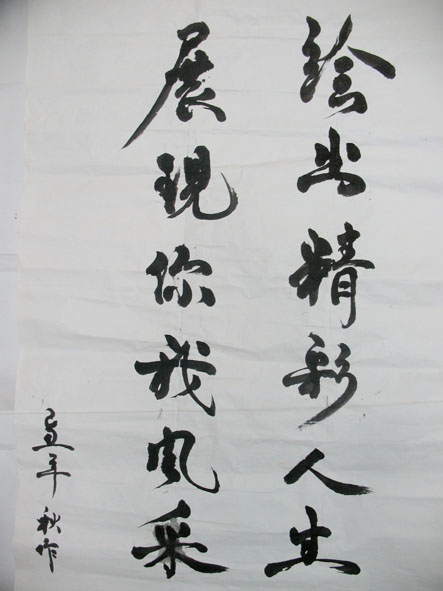 绘出精彩人生
展現你我風采
己丑年秋作